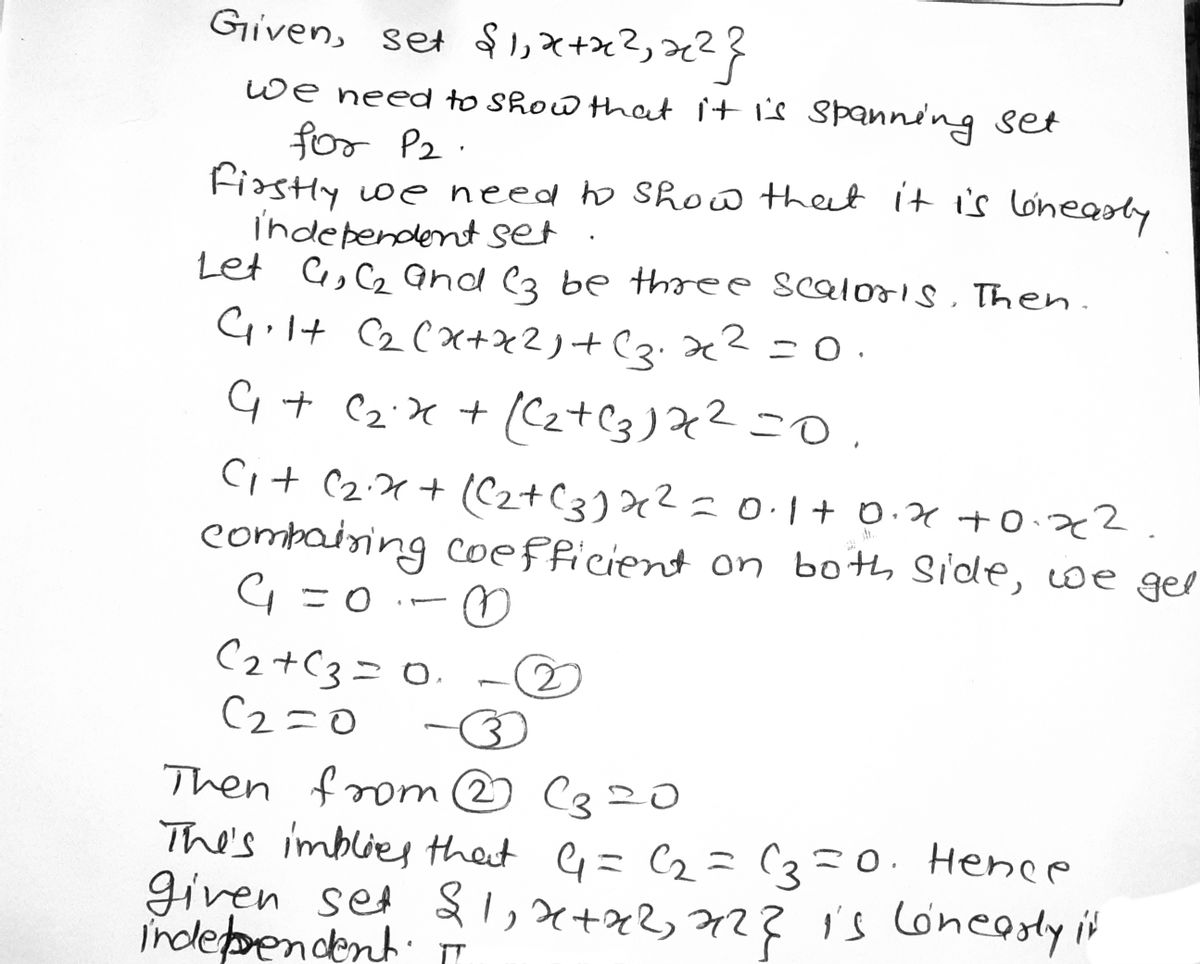 Given, set {1, x+x2, x2}
we need to show that it is spanning set
for P2.
firstly we need to show that it is linearly
independent set.
Let C1, C2 and C3 be three scalors. Then.
C1·1+ C2(x+x2)+C3·x2=0.
C1+ C2·x + (C2+C3)x2=0.
C1+ C2·x + (C2+C3)x2 = 0·1+ 0·x +0·x2.
compairing coefficient on both side, we get
C1=0.—①
C2+C3=0. —②
C2=0 —③
Then from ② C3=0
This implies that C1=C2=C3=0. Hence
given set {1, x+x2, x2} is linearly in
independent.